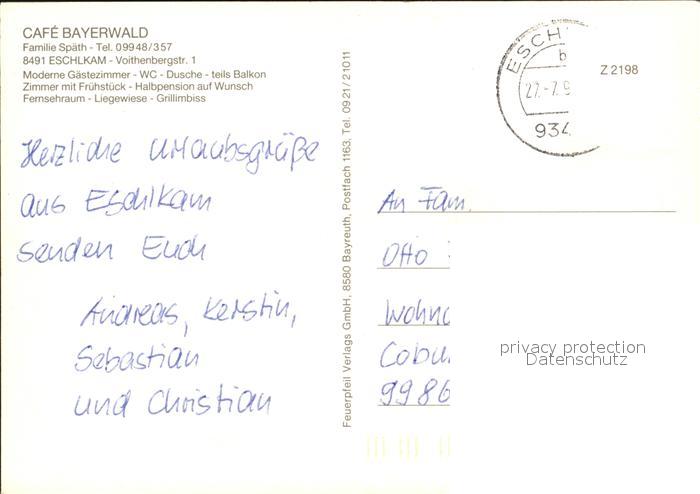 CAFÉ BAYERWALD
Familie Späth - Tel. 09948/357
8491 ESCHLKAM - Voithenbergstr. 1
Moderne Gästezimmer - WC - Dusche - teils Balkon
Zimmer mit Frühstück - Halbpension auf Wunsch
Fernsehraum - Liegewiese - Grillimbiss
Herzliche Urlaubsgrüße
aus Eschlkam
senden Euch
Andreas, Kerstin,
Sebastian
und Christian
Feuerpfeil Verlags GmbH, 8580 Bayreuth, Postfach 1163, Tel. 0921/21011
ESCH
b
27.-7.9
934
Z 2198
An Fam.
Otto
Wohn
Cobu
9986
privacy protection
Datenschutz